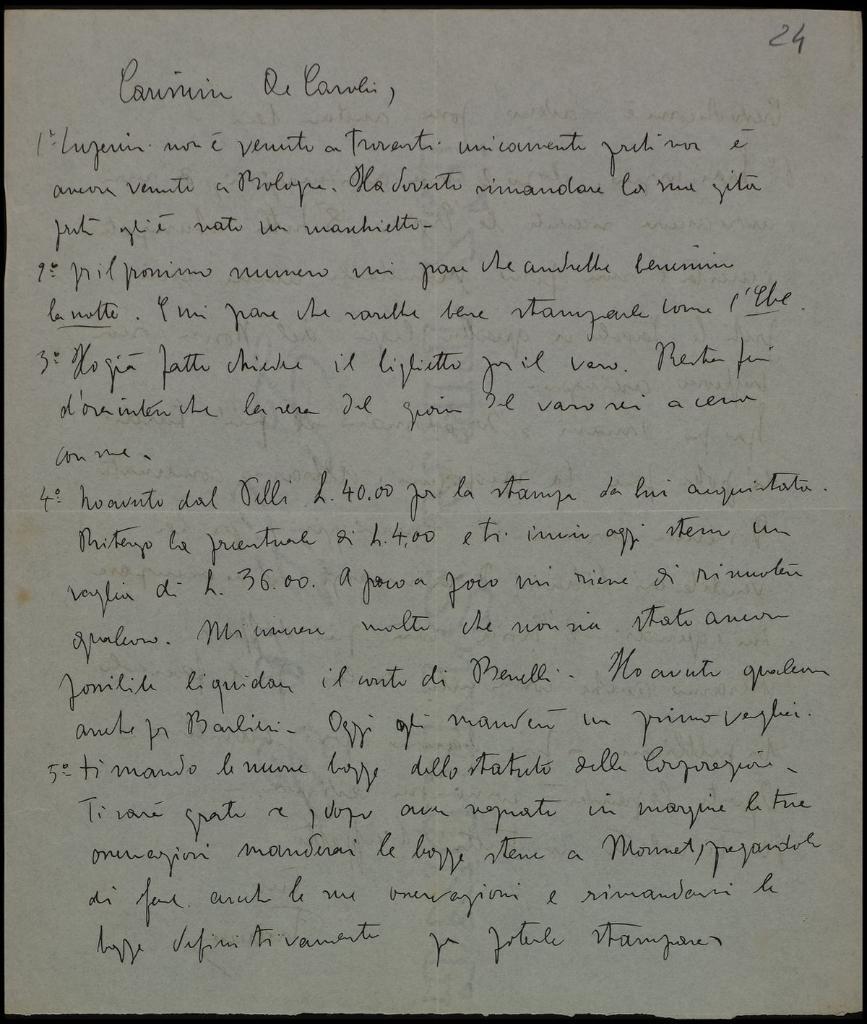 24
Carissimo De Carolis,
1º non è venuto a trovarti unicamente perché non è
ancora venuto a Bologna. Ha dovuto rimandare la sua gita
perché gli è nato un maschietto -
2º pel prossimo numero mi pare che andrebbe benissimo
la notte. E mi pare che sarebbe bene stamparla come l'Ebe.
3º Ho già fatto chiedere il biglietto per il varo. Resta fin
d'ora inteso che la sera del giorno del varo sei a cena
con me -
4º ho avuto dal L. 40.00 per la stampa da lui acquistata.
Ritengo la percentuale di L. 4,00 e ti invio oggi stesso un
vaglia di L. 36.00. A poco a poco mi riene di riscuotere
qualcosa. Mi molto che non sia stato ancora
possibile liquidare il conto di Benelli - Ho avuto qualcosa
anche per Barbieri - Oggi gli manderò un primo vaglia.
5º ti mando le nuove bozze dello statuto della Corporazione -
Ti sarò grato se, dopo aver segnato in margine le tue
osservazioni manderai le bozze stesse a Monnet, pregandolo
di fare anch le sue osservazioni e rimandarmi le
bozze definitivamente per poterle stampare -